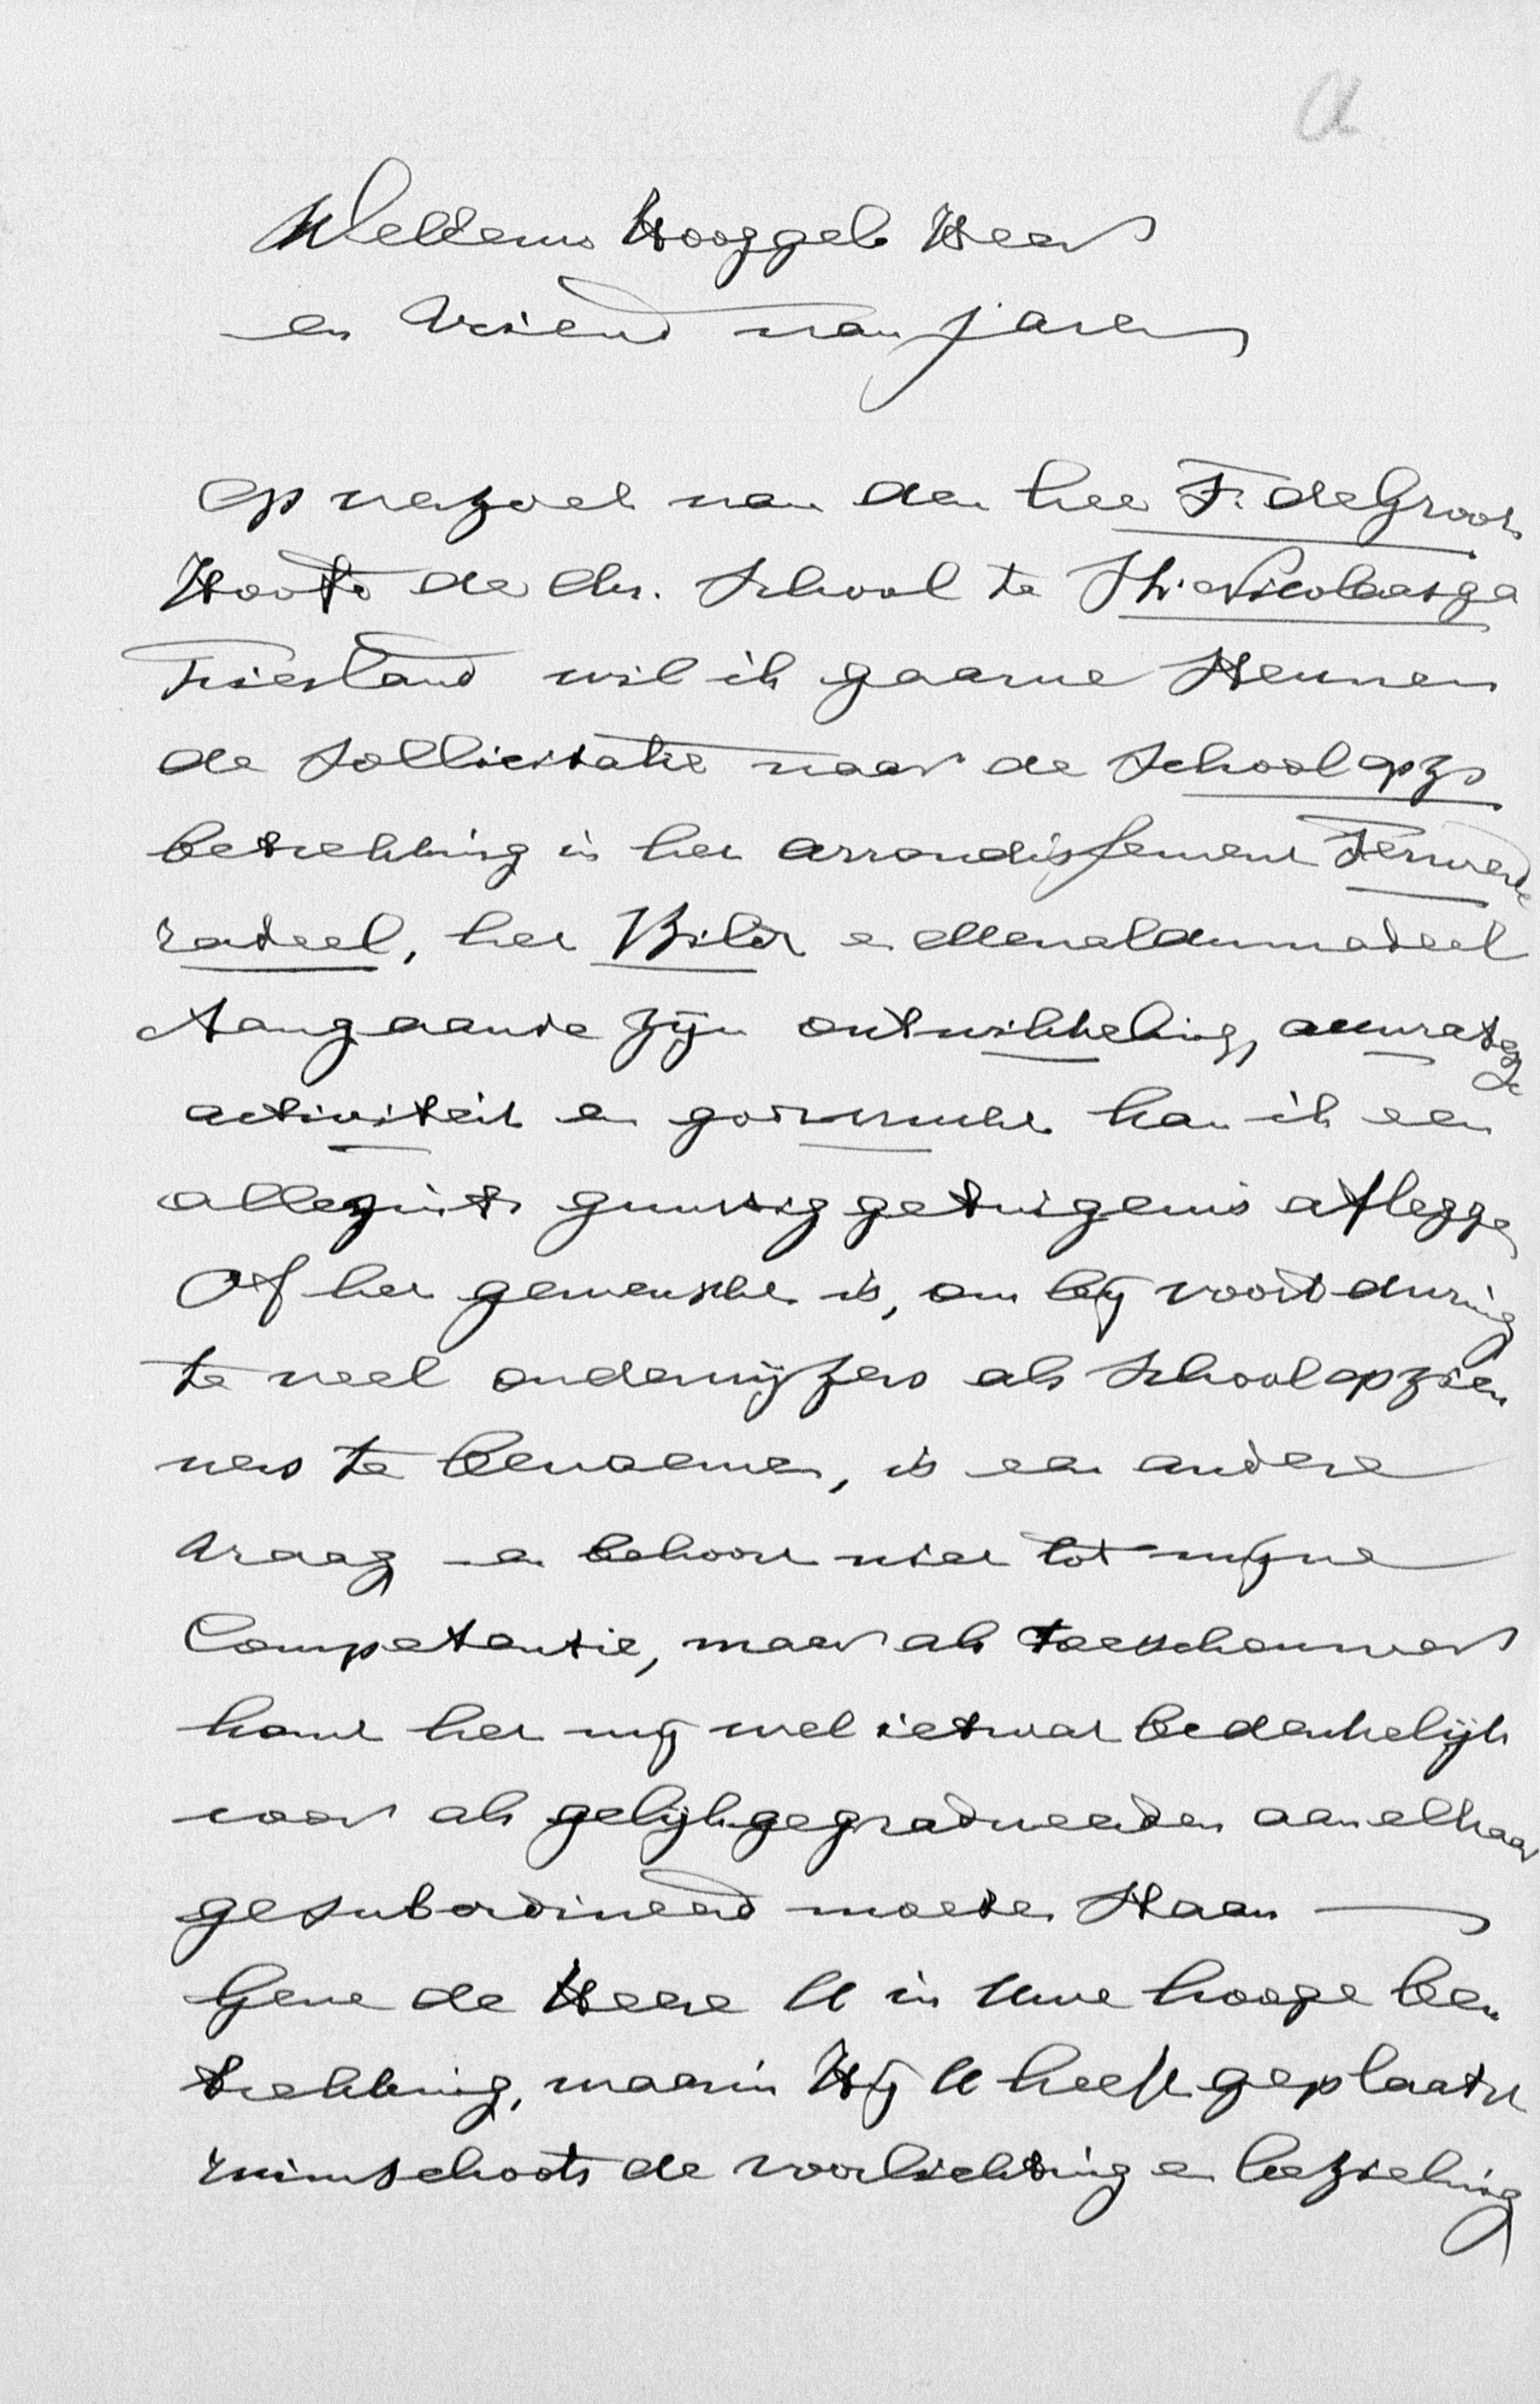 a
WelEdems Hooggeb Heer
en Vriend van jaren
Op verzoek van den heer F. de Groot
Hoofd der Chr. School te St. Nicolaasga
Friesland wil ik gaarne steunen
de sollicitatie naar de Schoolopz.
betrekking in het arrondissement Ferwerde
radeel, het Bildt en Menaldumadeel
Aangaande zijn ontwikkeling, accuratesse
activiteit en godsvrucht kan ik een
alleszints gunstig getuigenis afleggen
Of het gewenscht is, om bij voortduring
te veel onderwijzers als Schoolopzien
ners te benoemen, is een andere
vraag en behoort niet tot mijne
Competentie, maar als toeschouwer
komt het mij wel ietwat bedenkelijk
voor als gelijkgegradueerden aan elkaar
gesubordineerd moeten staan —
Geve de Heere U in Uwe hooge be
trekking, waarin Hij U heeft geplaatst
ruimschoots de voorlichting en bezieling